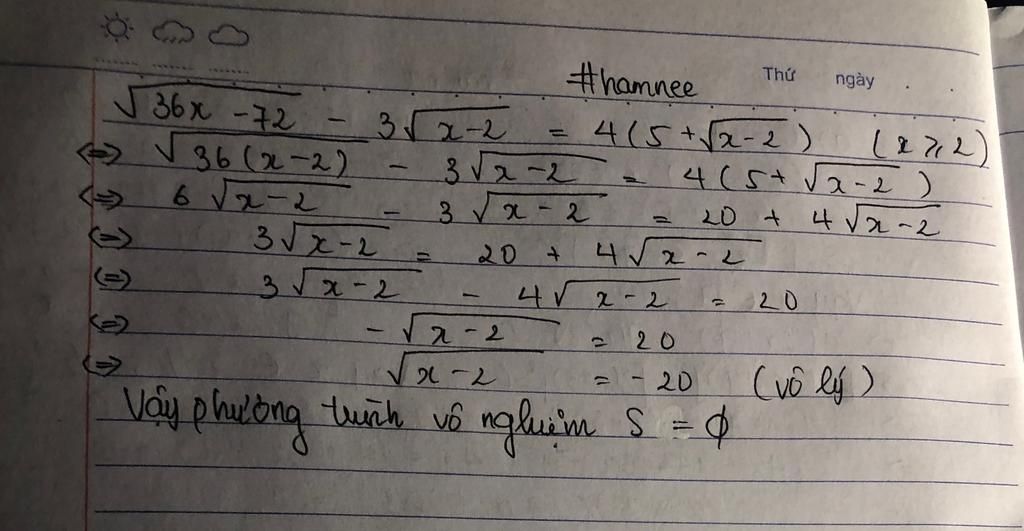 #hamnee Thứ ngày
√(36x - 72) - 3√(x-2) = 4(5 + √(x-2)) (x ≥ 2)
<=> √(36(x-2)) - 3√(x-2) = 4(5 + √(x-2))
<=> 6√(x-2) - 3√(x-2) = 20 + 4√(x-2)
<=> 3√(x-2) = 20 + 4√(x-2)
<=> 3√(x-2) - 4√(x-2) = 20
<=> -√(x-2) = 20
<=> √(x-2) = -20 (vô lý)
Vậy phương trình vô nghiệm S = ϕ